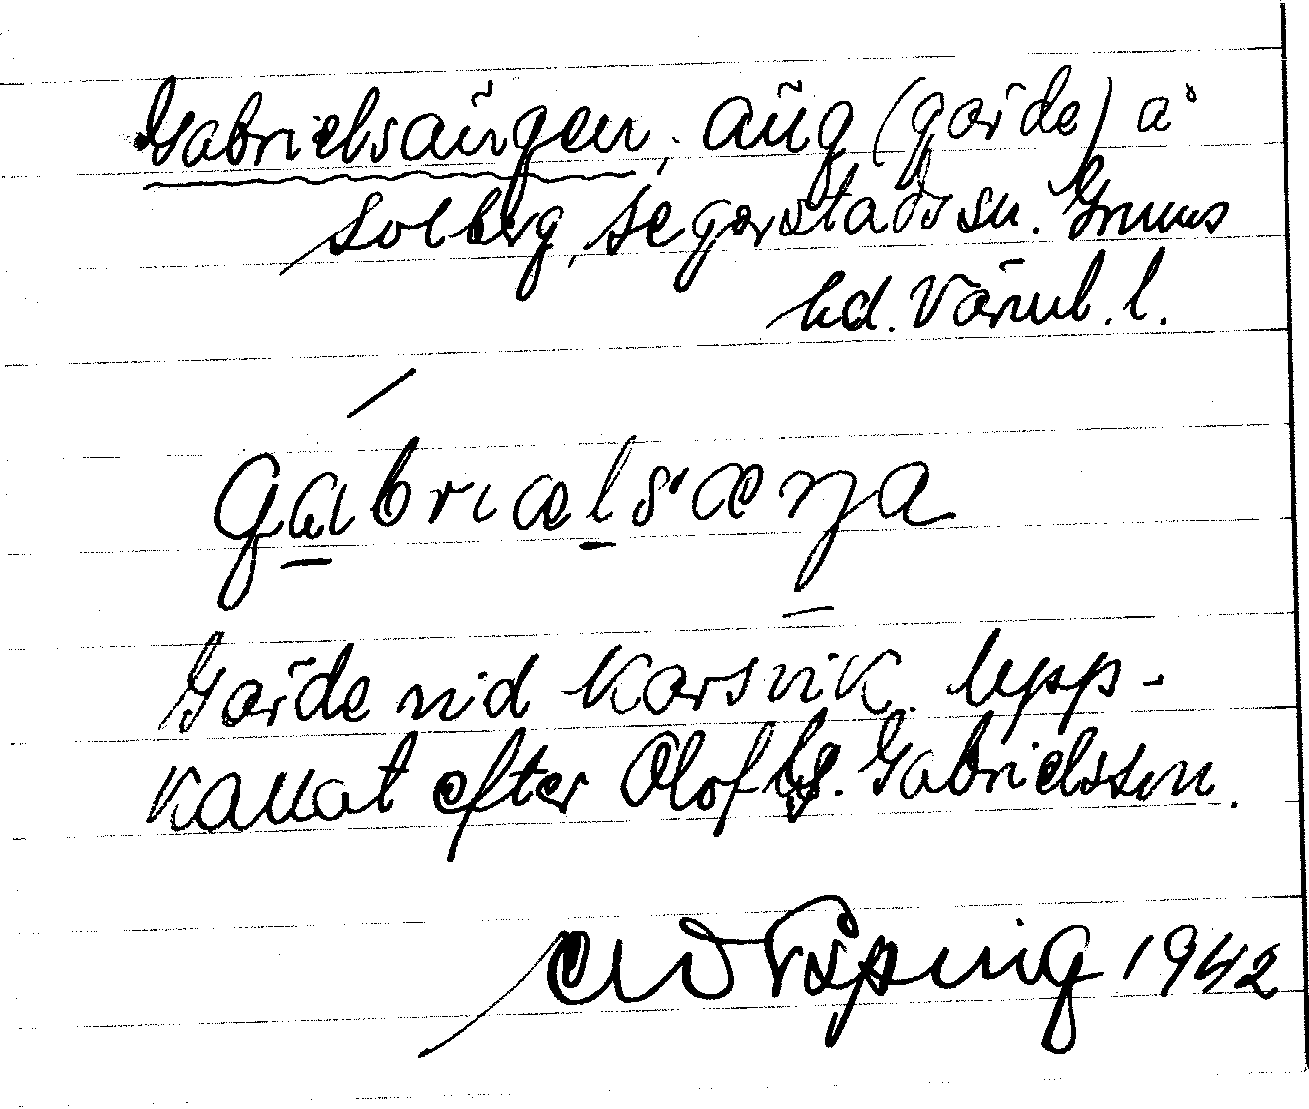 Gabrielsängen, äng (gärde) å
Solberg, Segerstads sn. Grums
hd. Värml. l.
Gärde vid Karsvik. Upp-
kallat efter Olof Gabrielsson.
1942